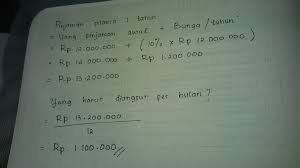 Pinjaman selama 1 tahun
= Uang pinjaman awal + Bunga / tahun
= Rp 12.000.000 + (10% x Rp 12.000.000)
= Rp 12.000.000 + Rp 1.200.000
= Rp 13.200.000
Yang harus diangsur per bulan?
= Rp 13.200.000
12
= Rp 1.100.000 //